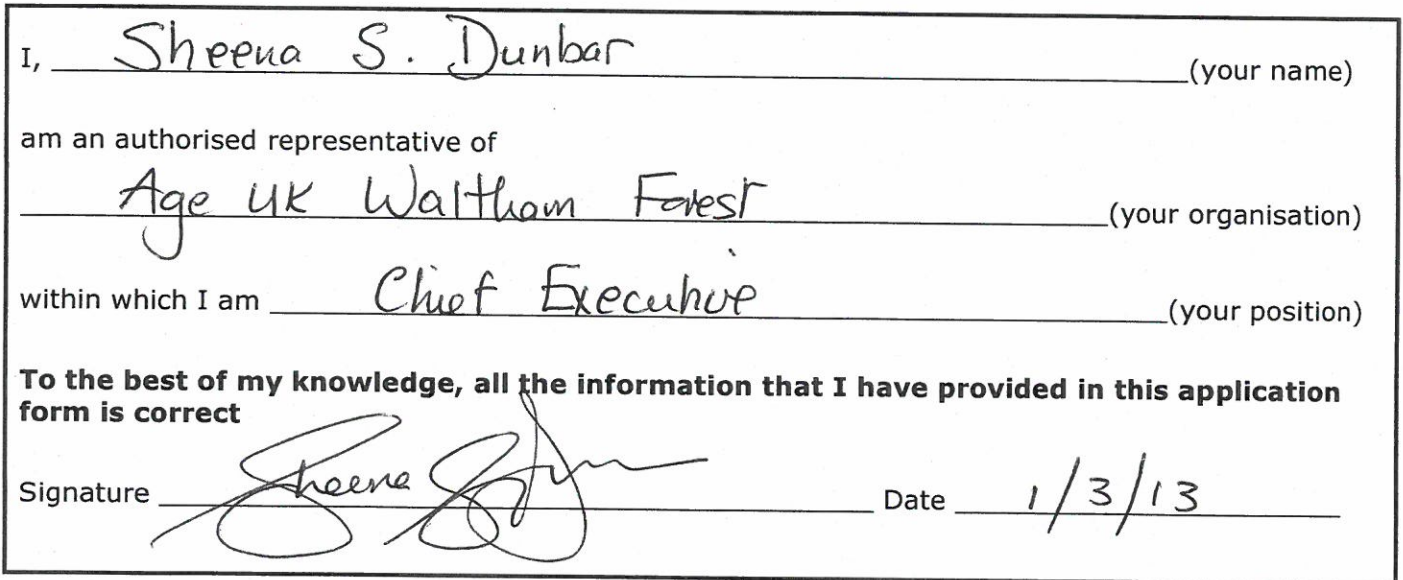 I, Sheena S. Dunbar (your name)
am an authorised representative of
Age UK Waltham Forest (your organisation)
within which I am Chief Executive (your position)
To the best of my knowledge, all the information that I have provided in this application
form is correct
Signature Sheena S Date 1/3/13